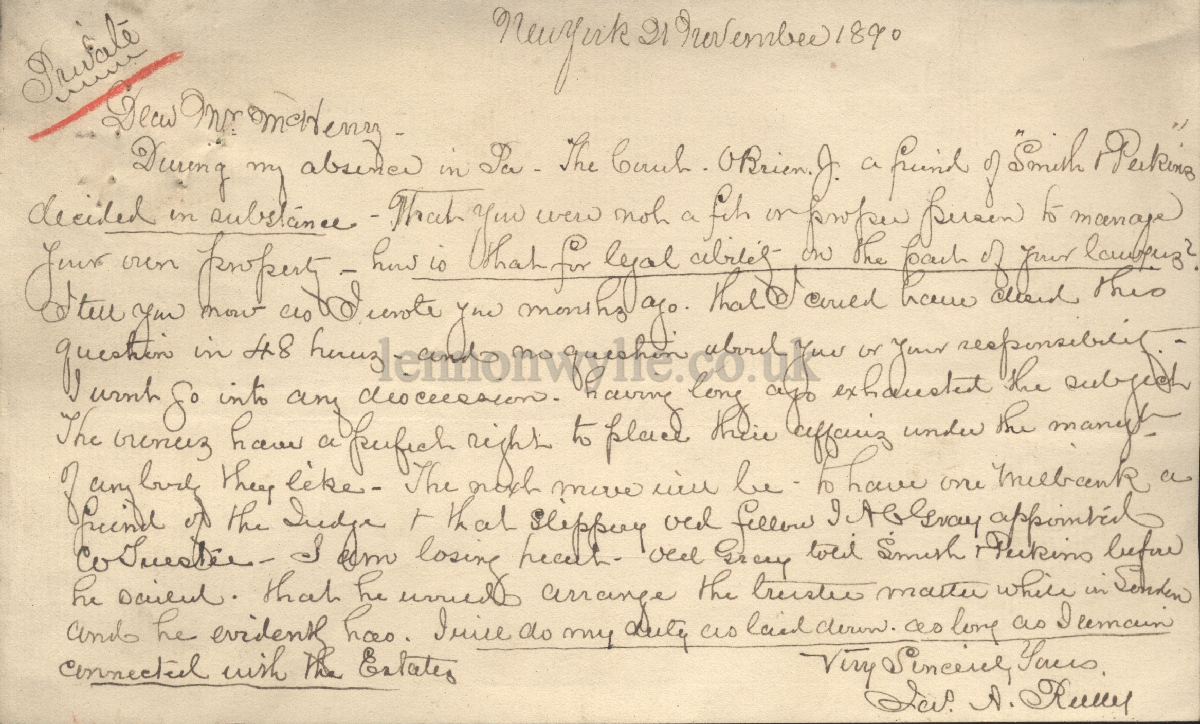 New York 21 November 1890
Private
Dear Mr McHenry -
During my absence in Pa - The Court - OBrien. J. a friend of "Smith & Perkins"
decided in substance - That you were not a fit or proper person to manage
your own property - how is that for legal ability on the part of your lawyers?
I tell you now as I wrote you months ago. that I could have closed this
question in 48 hours - and no question about you or your responsibility. -
I wont go into any discussion. having long ago exhausted the subject
The owners have a perfect right to place their affairs under the mangt
of anybody they like - The next move will be - to have one Milbank a
friend of the Judge & that slippery old fellow J A C Gray appointed
Co Trustee - I am losing heart - old Gray told Smith & Perkins before
he sailed. that he would arrange the trustee matter while in London
and he evidently has. I will do my duty as laid down. as long as I remain
connected with the Estates
Very Sincerely Yours.
Jas. A.
lennonwylie.co.uk